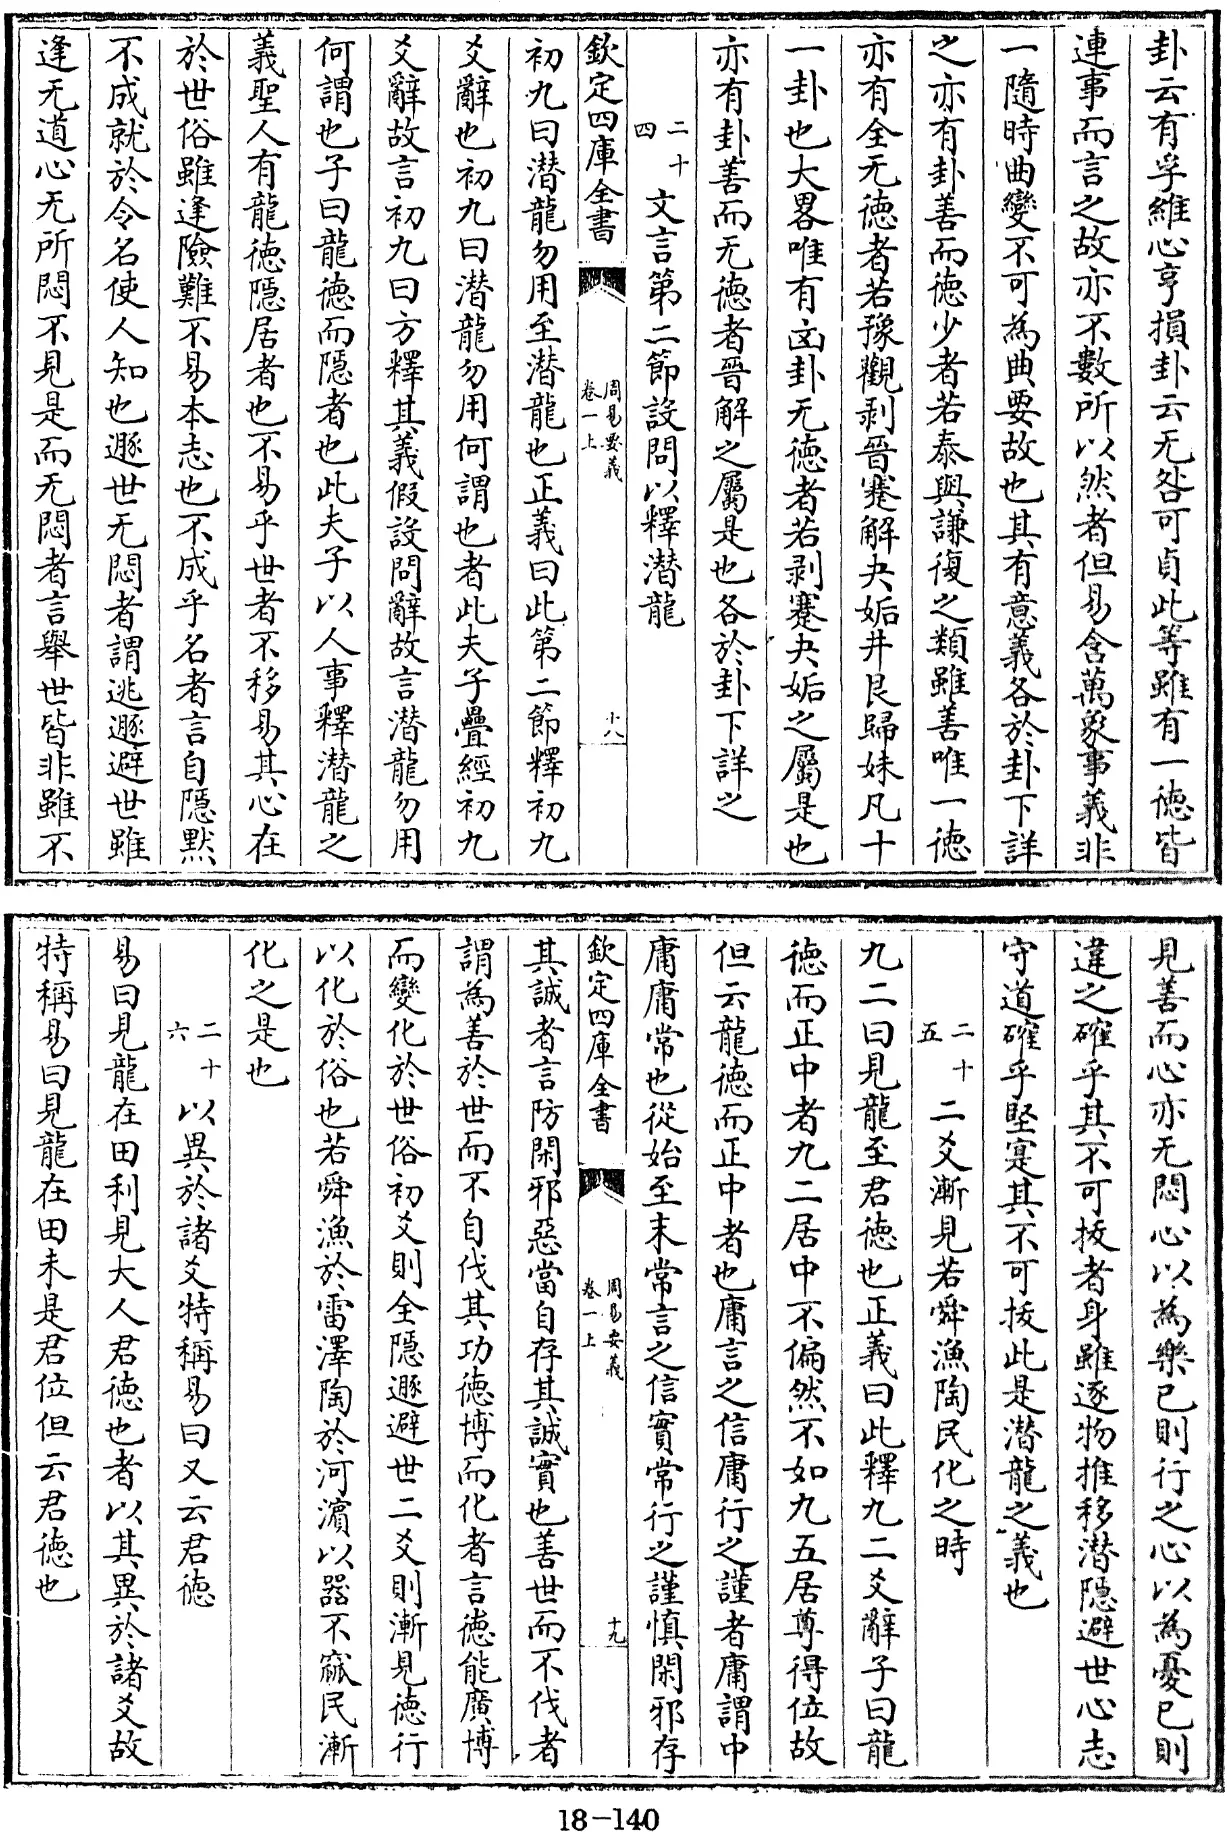 卦云有孚維心亨損卦云无咎可貞此等雖有一德皆
連事而言之故亦不數所以然者但易含萬象事義非
一隨時曲變不可為典要故也其有意義各於卦下詳
之亦有卦善而德少者若泰與謙復之類雖善唯一德
亦有全无德者若豫觀剥晉蹇解夬姤井艮歸妹凡十
一卦也大畧唯有凶卦无德者若剥蹇夬姤之屬是也
亦有卦善而无德者晉解之屬是也各於卦下詳之
二十四 文言第二節設問以釋潜龍
欽定四庫全書 周易要義 卷一上 十八
初九曰潜龍勿用至潜龍也正義曰此第二節釋初九
爻辭也初九曰潜龍勿用何謂也者此夫子疊經初九
爻辭故言初九曰方釋其義假設問辭故言潜龍勿用
何謂也子曰龍德而隱者也此夫子以人事釋潜龍之
義聖人有龍德隱居者也不易乎世者不移易其心在
於世俗雖逢險難不易本志也不成乎名者言自隱黙
不成就於令名使人知也遯世无悶者謂逃遯避世雖
逢无道心无所悶不見是而无悶者言舉世皆非雖不
見善而心亦无悶心以為樂已則行之心以為憂已則
違之確乎其不可拔者身雖逐物推移潜隱避世心志
守道確乎堅寔其不可拔此是潜龍之義也
二十五 二爻漸見若舜漁陶民化之時
九二曰見龍至君德也正義曰此釋九二爻辭子曰龍
德而正中者九二居中不偏然不如九五居尊得位故
但云龍德而正中者也庸言之信庸行之謹者庸謂中
庸庸常也從始至末常言之信實常行之謹慎閑邪存
欽定四庫全書 周易要義 卷一上 十九
其誠者言防閑邪惡當自存其誠實也善世而不伐者
謂為善於世而不自伐其功德博而化者言德能廣博
而變化於世俗初爻則全隱遯避世二爻則漸見德行
以化於俗也若舜漁於雷澤陶於河濱以器不窳民漸
化之是也
二十六 以異於諸爻特稱易曰又云君德
易曰見龍在田利見大人君德也者以其異於諸爻故
特稱易曰見龍在田未是君位但云君德也
18-140